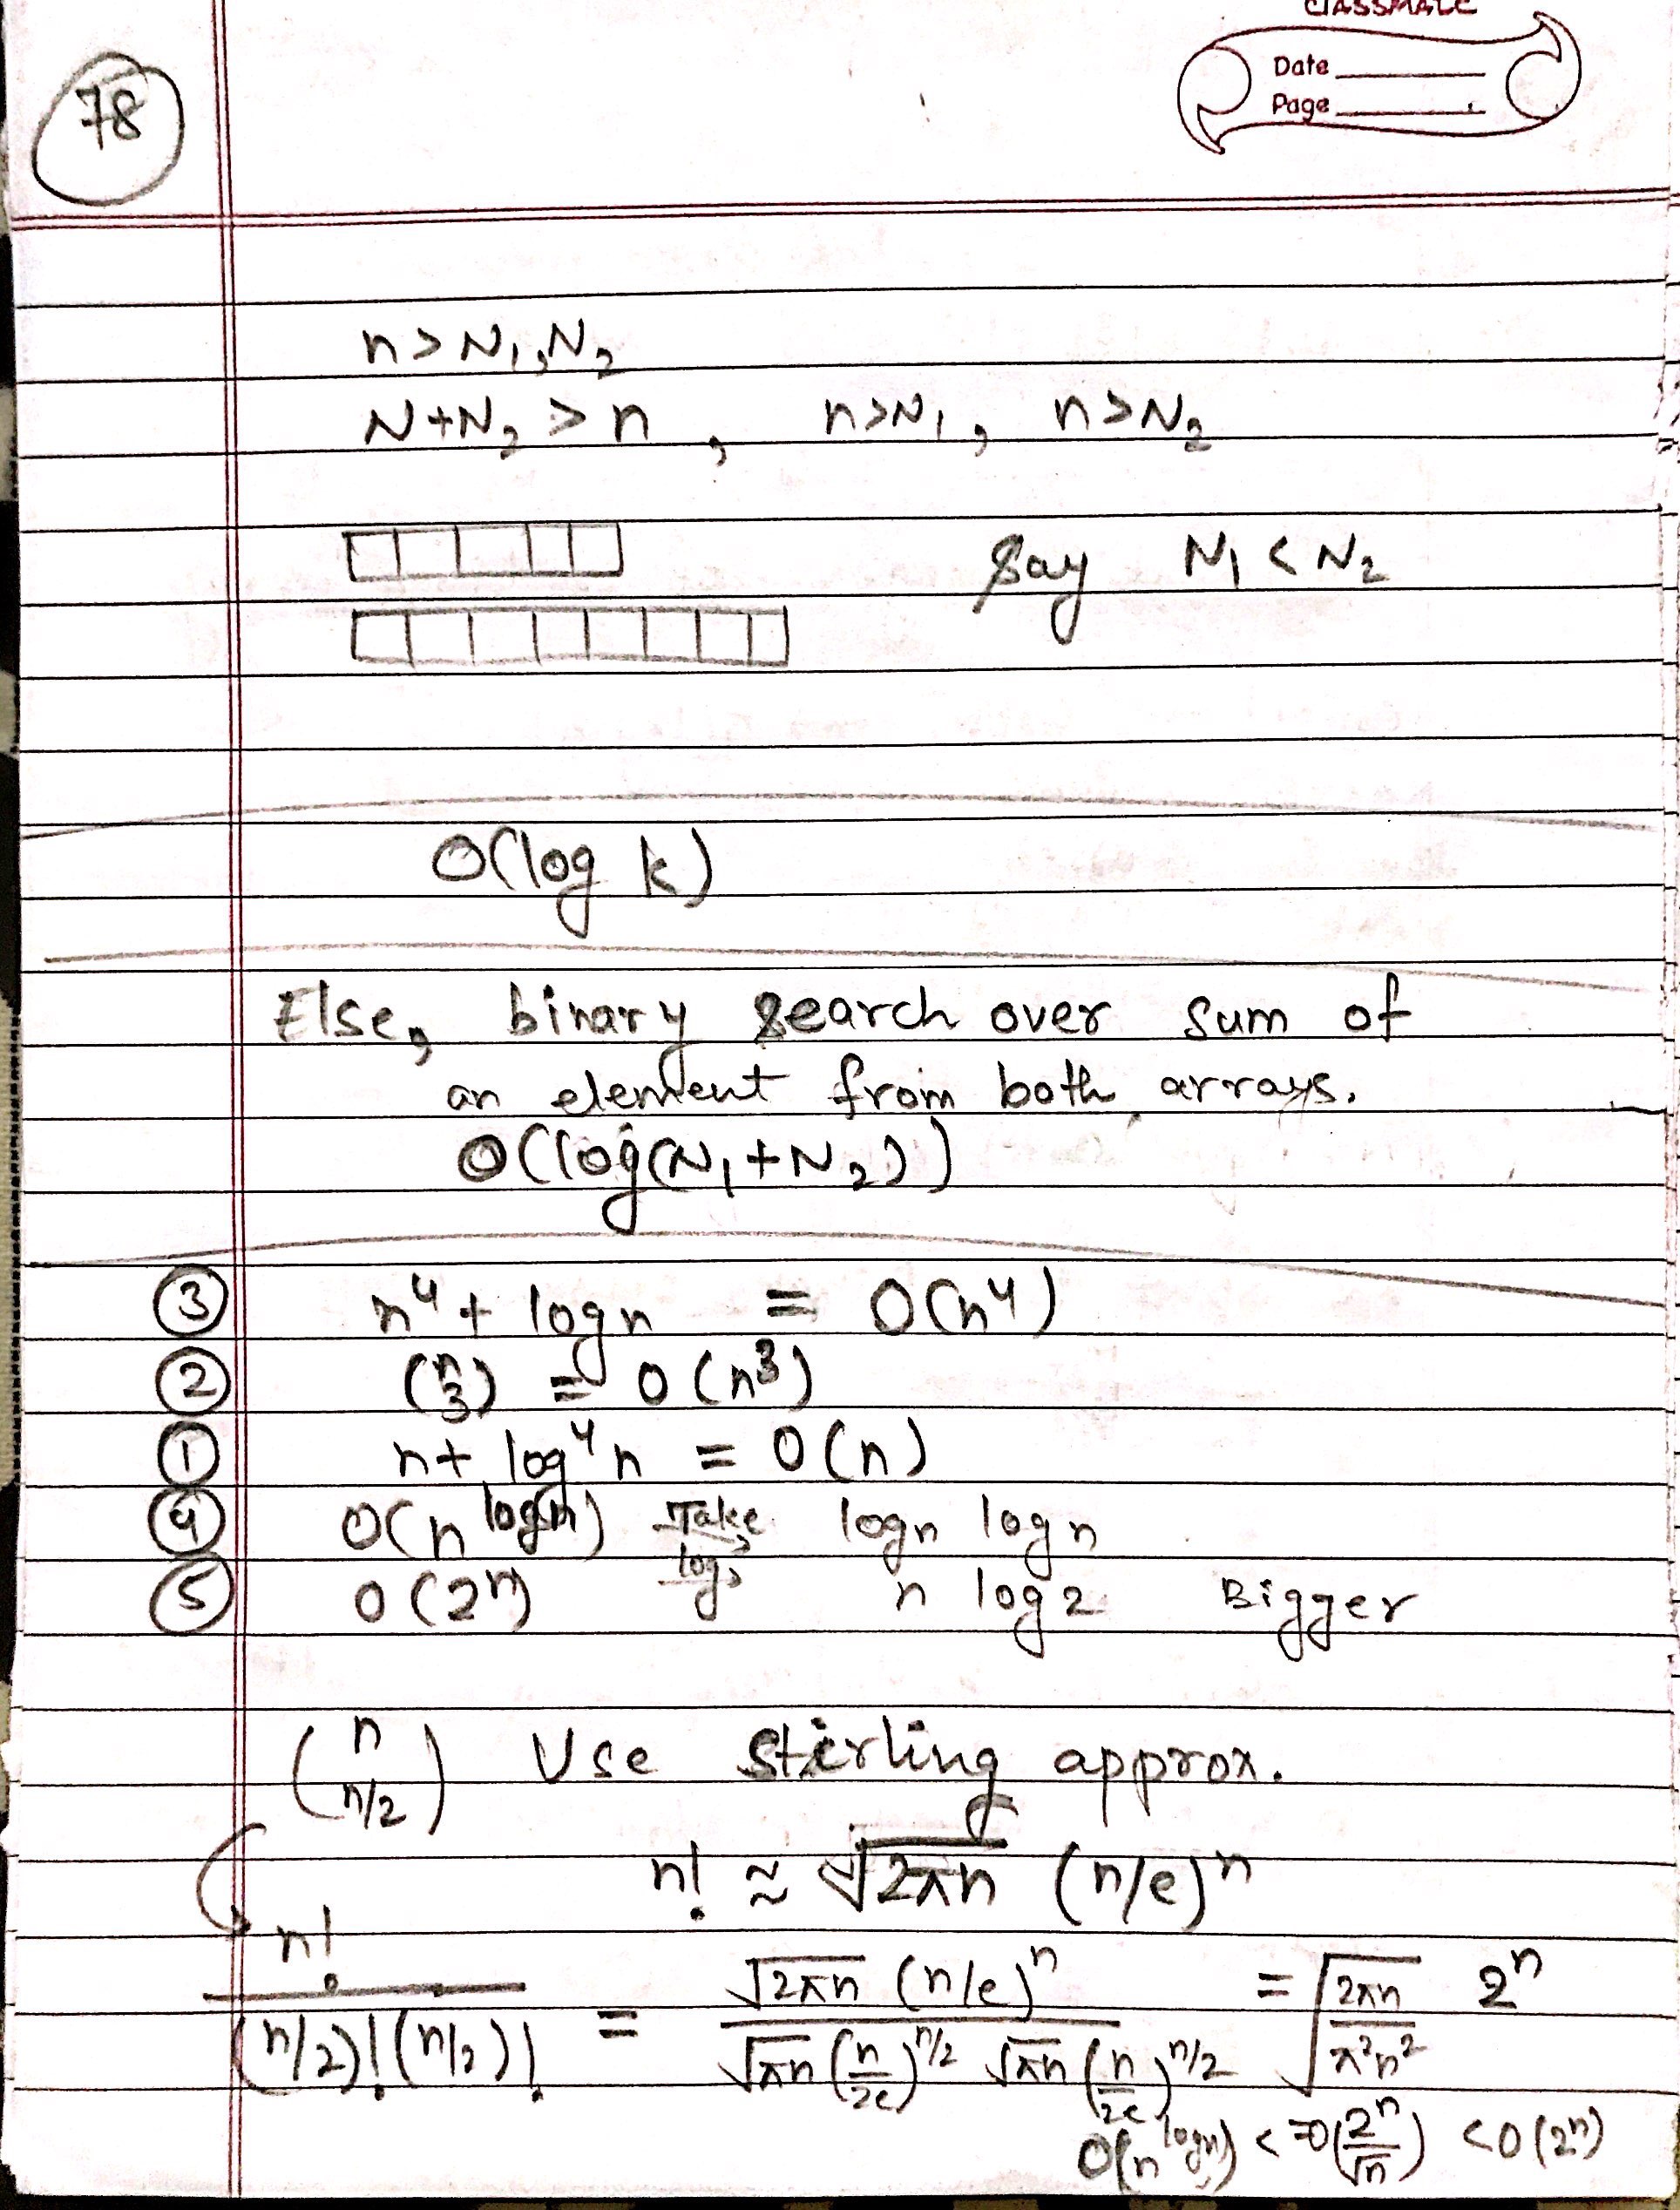 classmate
Date
Page
78
n > N₁, N₂
N + N₂ > n , n > N₁ , n > N₂
Say N₁ < N₂
O(log k)
Else, binary search over sum of
an element from both arrays.
O(log(N₁ + N₂))
③ n⁴ + log n = O(n⁴)
② (n 3) = O(n³)
① n + log⁴ n = O(n)
④ O(n^(log n)) Take logs log n log n
⑤ O(2ⁿ) n log 2 Bigger
(n n/2) Use stirling approx.
n! ≈ √(2πn) (n/e)ⁿ
n! / (n/2)! (n/2)! = √(2πn) (n/e)ⁿ / √(πn) (n/2e)^(n/2) √(πn) (n/2e)^(n/2) = √(2πn / π²n²) 2ⁿ
O(n^(log n)) < =O(2ⁿ/√n) < O(2ⁿ)